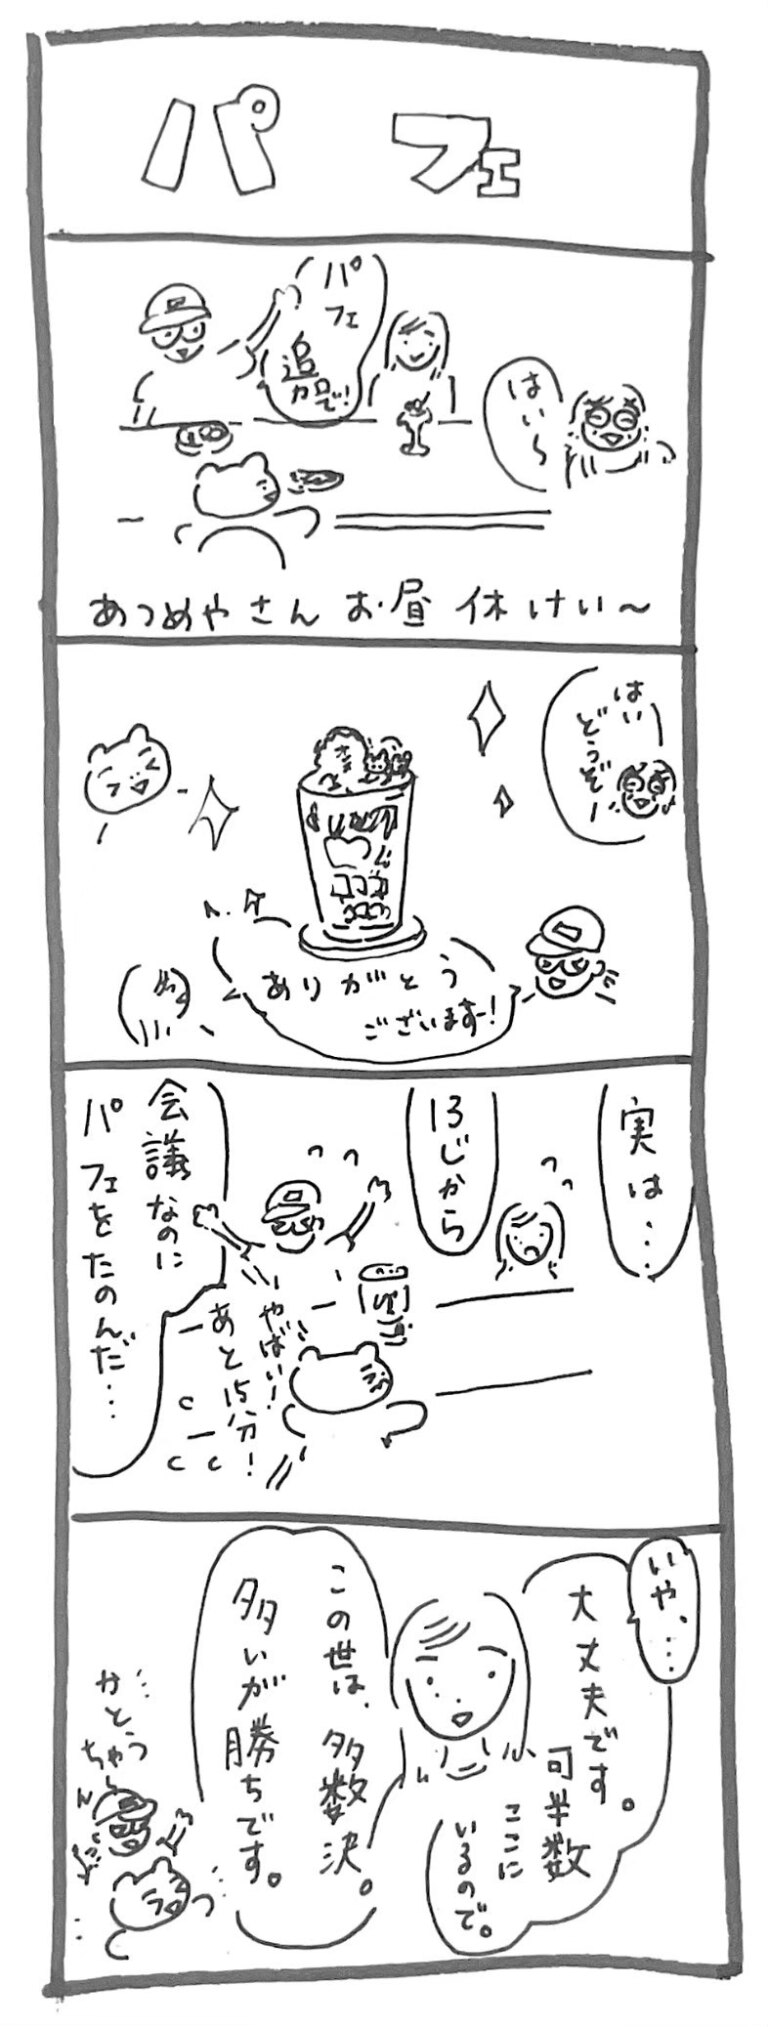 パフェ
パフェ
追加で!
はい〜
あつめやさん お昼休けい〜
はい
どうぞー
ありがとう
ございますー!
実は…
13じから
会議なのに
パフェをたのんだ…
やばい!
あと15分!
いや、…
大丈夫です。
可半数
ここに
いるので。
この世は、多数決。
多いが勝ちです。
かとう
ちゃん